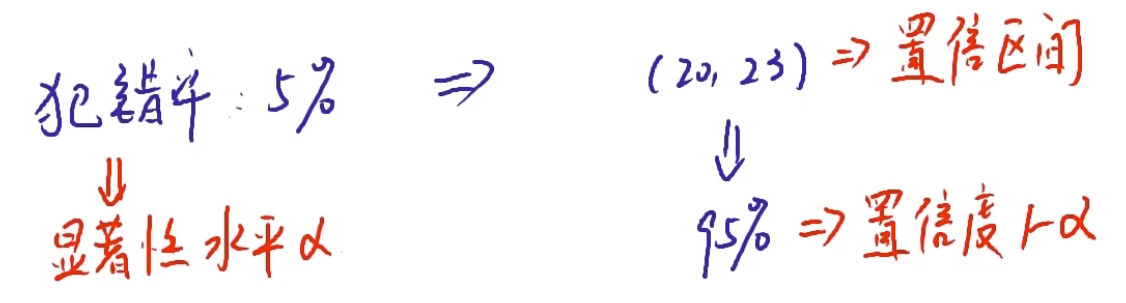 犯错率：5% ⇒ (20, 23) ⇒ 置信区间
⇓ ⇓
显著性水平α 95% ⇒ 置信度1-α